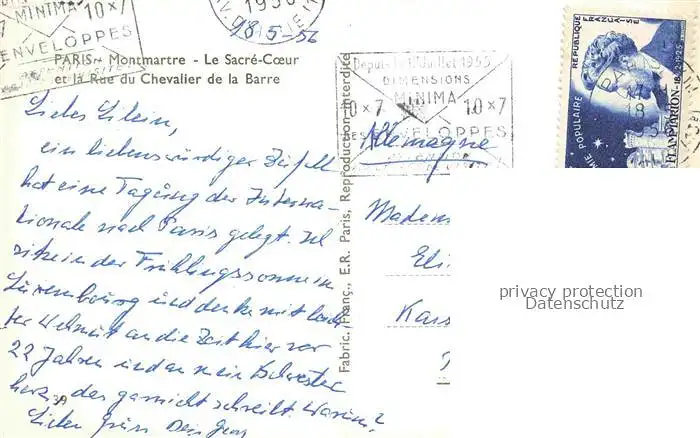 MINIMA
10 x 7
ENVELOPPES
18-5-56
PARIS - Montmartre - Le Sacré-Cœur
et la Rue du Chevalier de la Barre
Liebes Lilein,
ein liebenswürdiger Zufall
hat eine Tagung der Interna-
tionale nach Paris gelegt. Ich
sitze in der Frühlingssonne im
Luxembourg und denke mit
ter Wehmut an die Zeit hier vor
22 Jahren und an mein Schwester
herz, das garnicht schreibt. Warum?
Lieben Gruss Dein
Fabric. Franç., E.R. Paris, Reproduction interdite
Depuis le 1er Juillet 1955
DIMENSIONS
MINIMA
10 x 7 10 x 7
DES ENVELOPPES
Allemagne
REPUBLIQUE FRANÇAISE
FLAMMARION - 1842-1925
MIE POPULAIRE
PARIS
18
Madem
Eli
Kass
privacy protection
Datenschutz